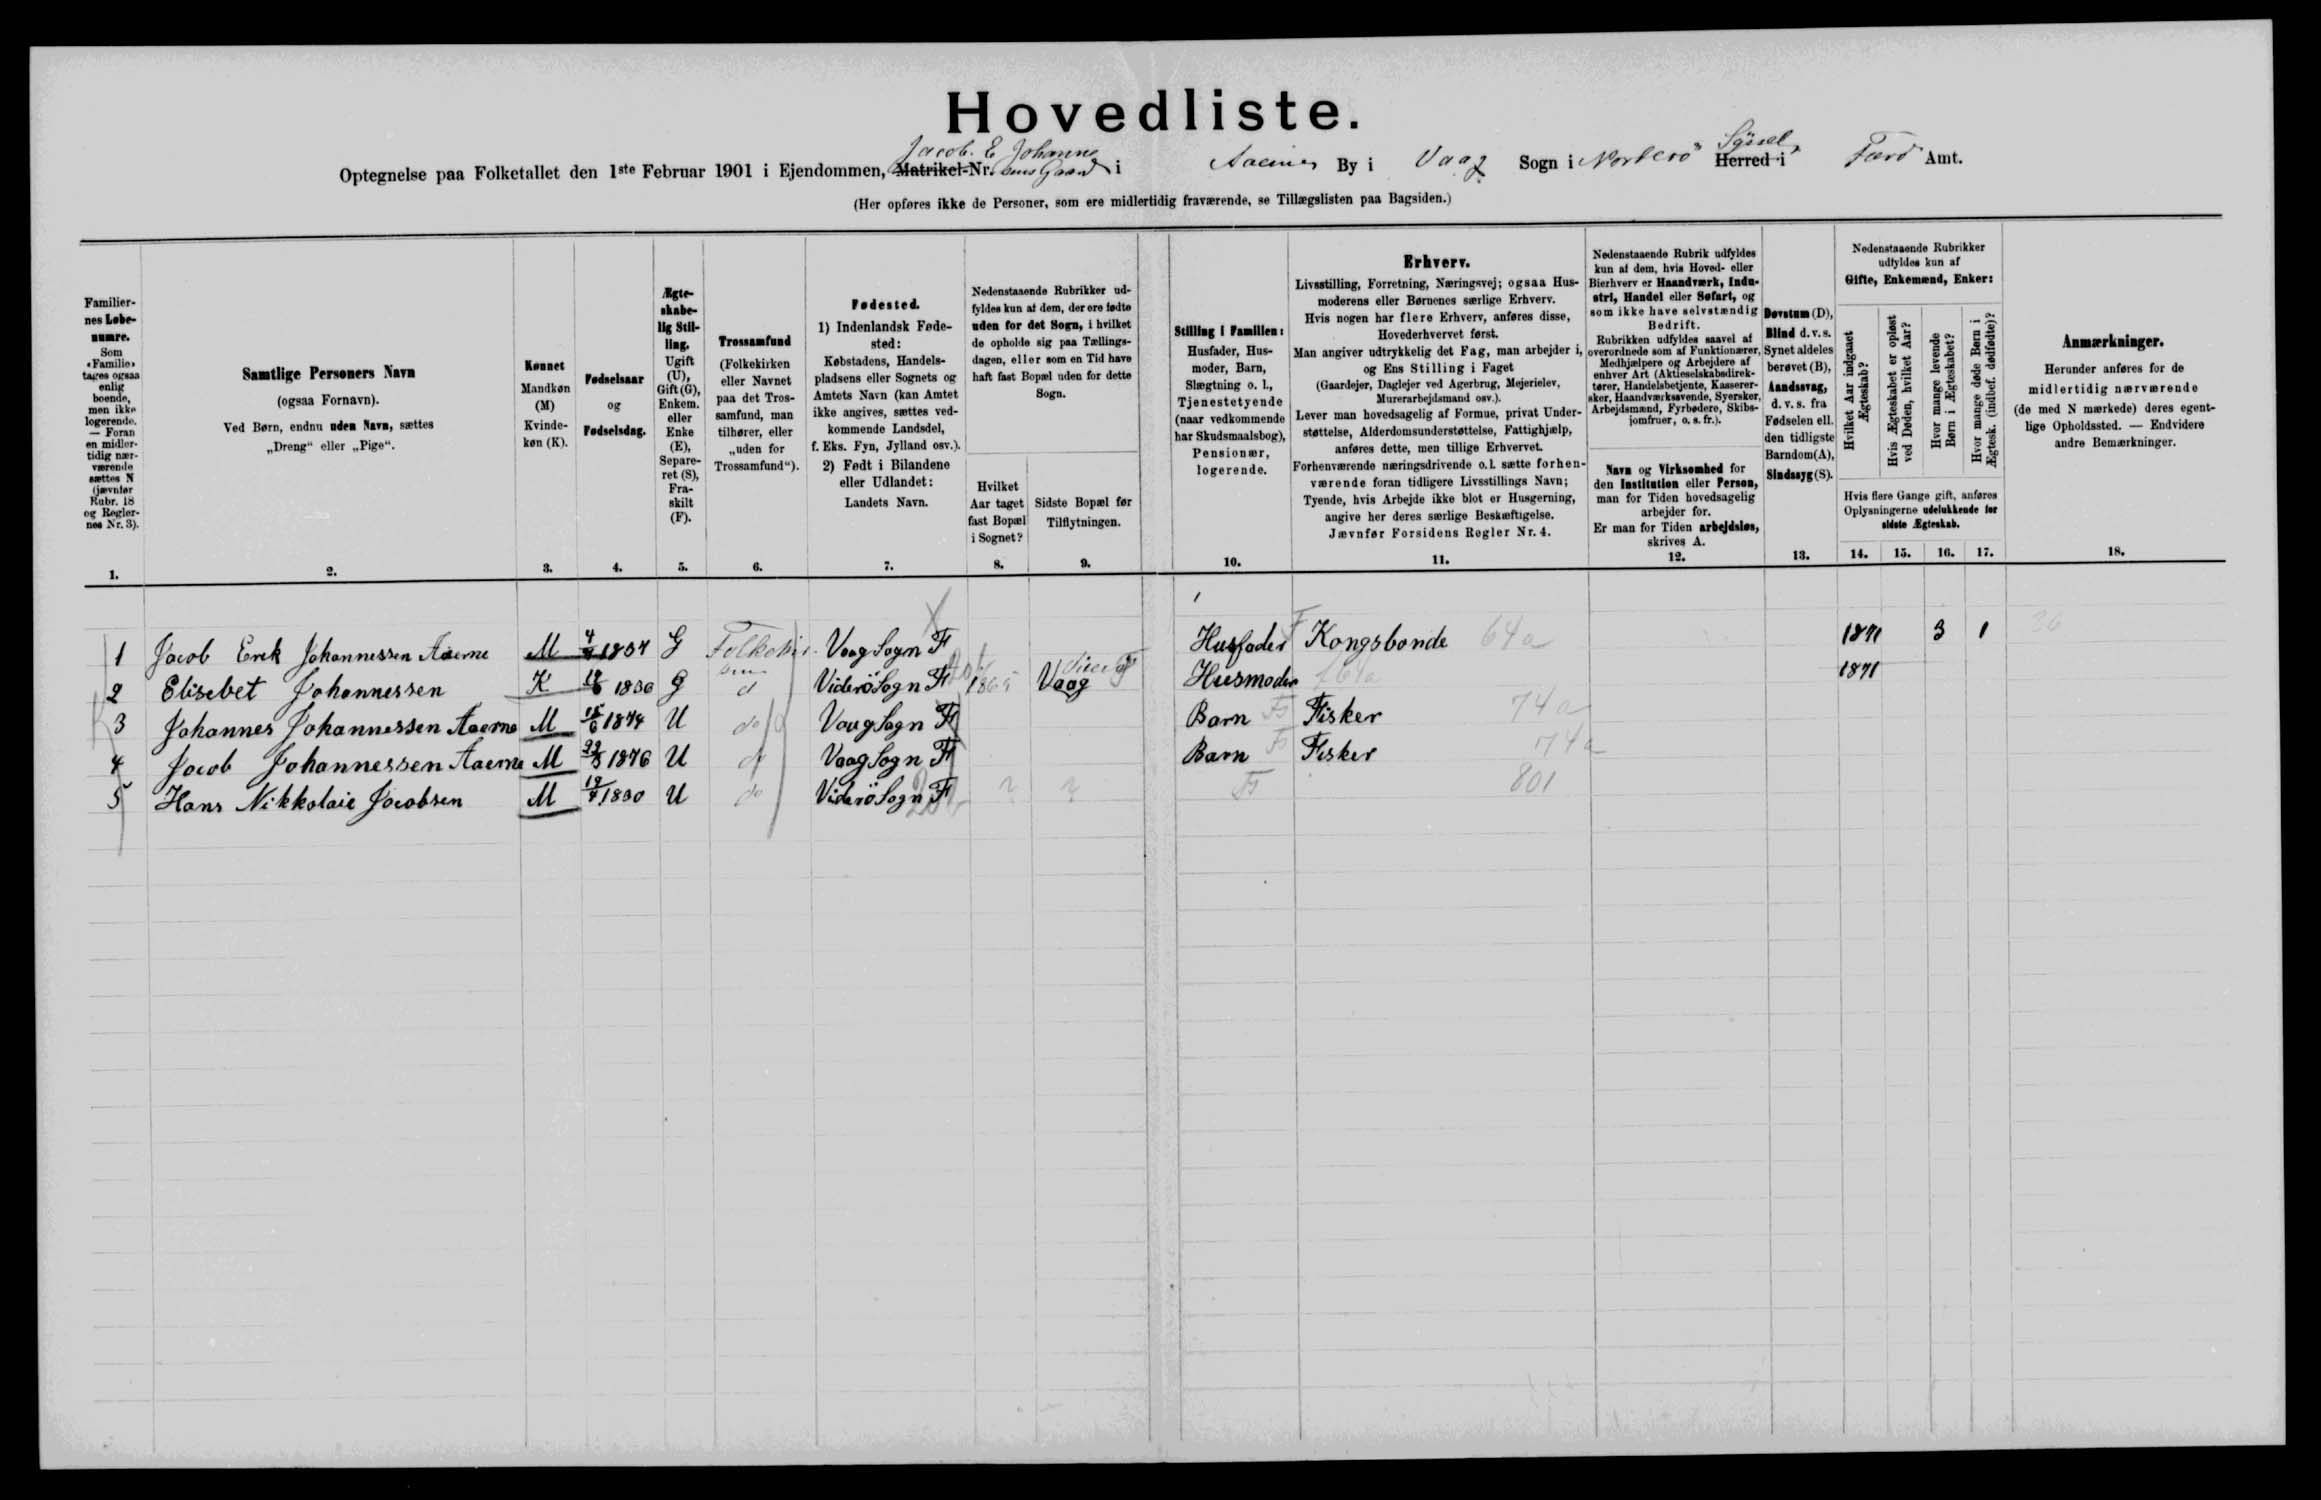 Hovedliste.
Optegnelse paa Folketallet den 1ste Februar 1901 i Ejendommen, Matrikel-Nr. Jacob. E Johannesens Gaard i By i Vaag Sogn i Norderö Herred i Sÿssel, Færö Amt.
(Her opføres ikke de Personer, som ere midlertidig fraværende, se Tillægslisten paa Bagsiden.)
Familier-
nes Løbe-
numre.
Som
«Familie»
tages ogsaa
enlig
boende,
men ikke
logerende.
— Foran
en midler-
tidig nær-
værende
sættes N
(jævnfør
Rubr. 18
og Regler-
nes Nr. 3).
1.
Samtlige Personers Navn
(ogsaa Fornavn).
Ved Børn, endnu uden Navn, sættes
„Dreng“ eller „Pige“.
2.
Kønnet
Mandkøn
(M)
Kvinde-
køn (K).
3.
Fødselsaar
og
Fødselsdag.
4.
Ægte-
skabe-
lig Stil-
ling.
Ugift
(U),
Gift (G),
Enkem.
eller
Enke
(E),
Separe-
ret (S),
Fra-
skilt
(F).
5.
Trossamfund
(Folkekirken
eller Navnet
paa det Tros-
samfund, man
tilhører, eller
„uden for
Trossamfund“).
6.
Fødested.
1) Indenlandsk Føde-
sted:
Købstadens, Handels-
pladsens eller Sognets og
Amtets Navn (kan Amtet
ikke angives, sættes ved-
kommende Landsdel,
f. Eks. Fyn, Jylland osv.).
2) Født i Bilandene
eller Udlandet:
Landets Navn.
7.
Nedenstaaende Rubrikker ud-
fyldes kun af dem, der ere fødte
uden for det Sogn, i hvilket
de opholde sig paa Tællings-
dagen, eller som en Tid have
haft fast Bopæl uden for dette
Sogn.
Hvilket
Aar taget
fast Bopæl
i Sognet?
8.
Sidste Bopæl før
Tilflytningen.
9.
Stilling i Familien:
Husfader, Hus-
moder, Barn,
Slægtning o. l.,
Tjenestetyende
(naar vedkommende
har Skudsmaalsbog),
Pensionær,
logerende.
10.
Erhverv.
Livsstilling, Forretning, Næringsvej; ogsaa Hus-
moderens eller Børnenes særlige Erhverv.
Hvis nogen har flere Erhverv, anføres disse,
Hovederhvervet først.
Man angiver udtrykkelig det Fag, man arbejder i,
og Ens Stilling i Faget
(Gaardejer, Daglejer ved Agerbrug, Mejerielev,
Murerarbejdsmand osv.).
Lever man hovedsagelig af Formue, privat Under-
støttelse, Alderdomsunderstøttelse, Fattighjælp,
anføres dette, men tillige Erhvervet.
Forhenværende næringsdrivende o. l. sætte forhen-
værende foran tidligere Livsstillings Navn;
Tyende, hvis Arbejde ikke blot er Husgerning,
angive her deres særlige Beskæftigelse.
Jævnfør Forsidens Regler Nr. 4.
11.
Nedenstaaende Rubrik udfyldes
kun af dem, hvis Hoved- eller
Bierhverv er Haandværk, Indu-
stri, Handel eller Søfart, og
som ikke have selvstændig
Bedrift.
Rubrikken udfyldes saavel af
overordnede som af Funktionærer,
Medhjælpere og Arbejdere af
enhver Art (Aktieselskabsdirek-
tører, Handelsbetjente, Kasserer-
sker, Haandværkssvende, Syersker,
Arbejdsmænd, Fyrbødere, Skibs-
jomfruer, o. s. fr.).
Navn og Virksomhed for
den Institution eller Person,
man for Tiden hovedsagelig
arbejder for.
Er man for Tiden arbejdsløs,
skrives A.
12.
Døvstum (D),
Blind d. v. s.
Synet aldeles
berøvet (B),
Aandssvag,
d. v. s. fra
Fødselen ell.
den tidligste
Barndom (A),
Sindssyg (S).
13.
Nedenstaaende Rubrikker
udfyldes kun af
Gifte, Enkemænd, Enker:
Hvilket Aar indgaaet
Ægteskab?
Hvis Ægteskabet er opløst
ved Døden, hvilket Aar?
Hvor mange levende
Børn i Ægteskabet?
Hvor mange døde Børn i
Ægtesk. (indbef. dødfødte)?
Hvis flere Gange gift, anføres
Oplysningerne udelukkende for
sidste Ægteskab.
14. 15. 16. 17.
Anmærkninger.
Herunder anføres for de
midlertidig nærværende
(de med N mærkede) deres egent-
lige Opholdssted. — Endvidere
andre Bemærkninger.
18.
1 Jacob Erek Johannessen Aaerne M 1834 G Vaag Sogn F Husfader F Kongsbonde 64a 1871 3 1
2 Elisebet Johannessen K 1836 G d Viderö Sogn F 1865 Vaag Husmoder 1871
3 Johannes Johannessen Aaerne M 15/6 1874 U do Vaag Sogn F Barn F Fisker 74a
4 Jacob Johannessen Aaerne M 1876 U do Vaag Sogn F Barn F Fisker 74a
5 Hans Nikkolaie Jacobsen M 1830 U do Viderö Sogn F ? ? F 801